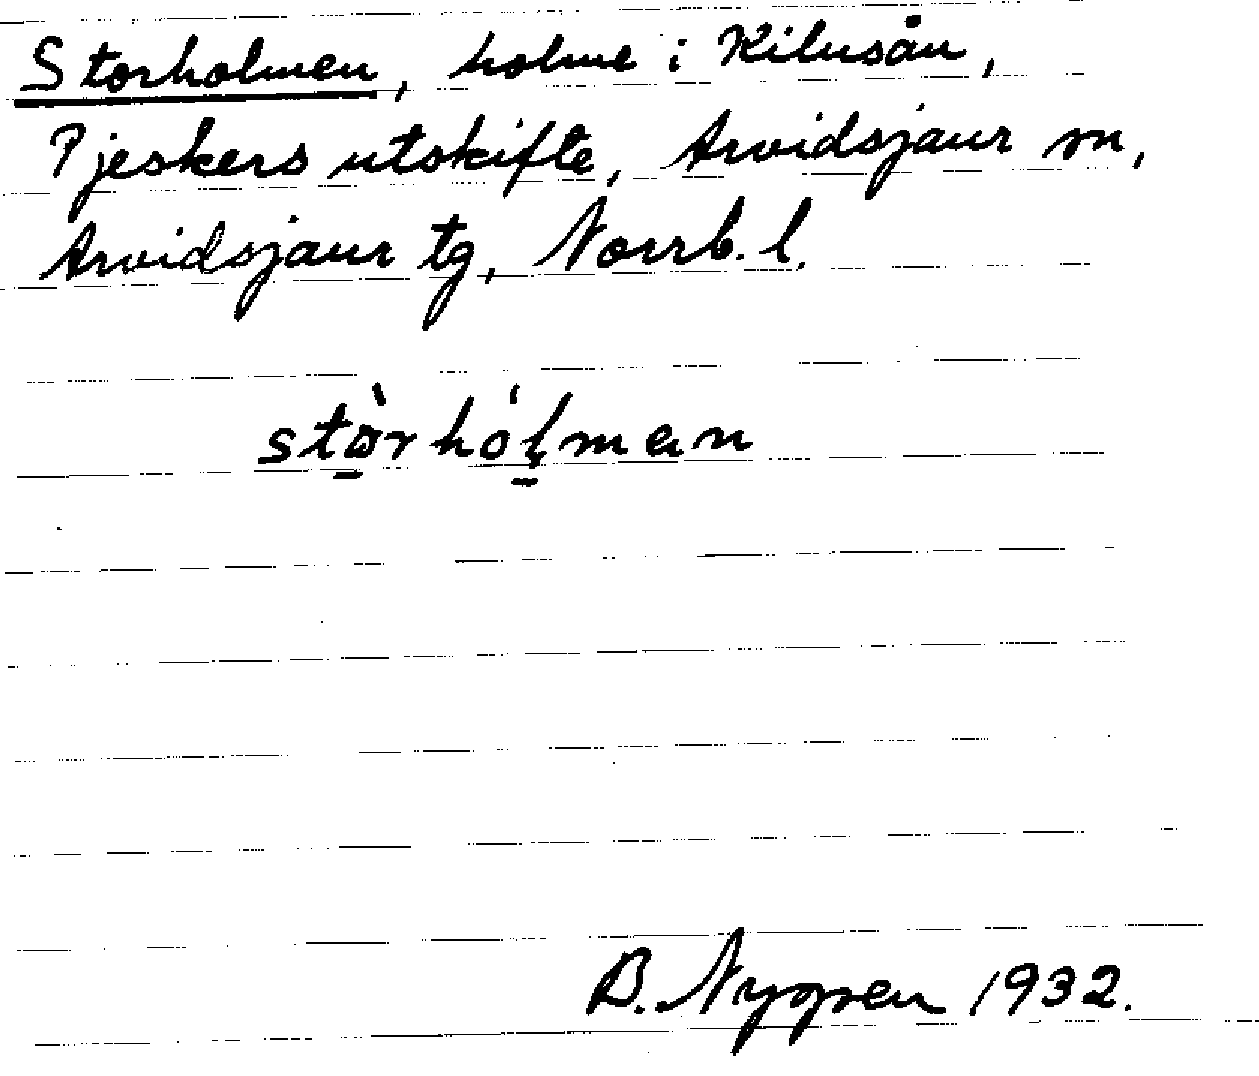 Storholmen, holme i Kilusån,
Pjeskers utskifte, Arvidsjaur sn,
Arvidsjaur tg, Norrb. l.
stòrhólmen
B. Nygren 1932.